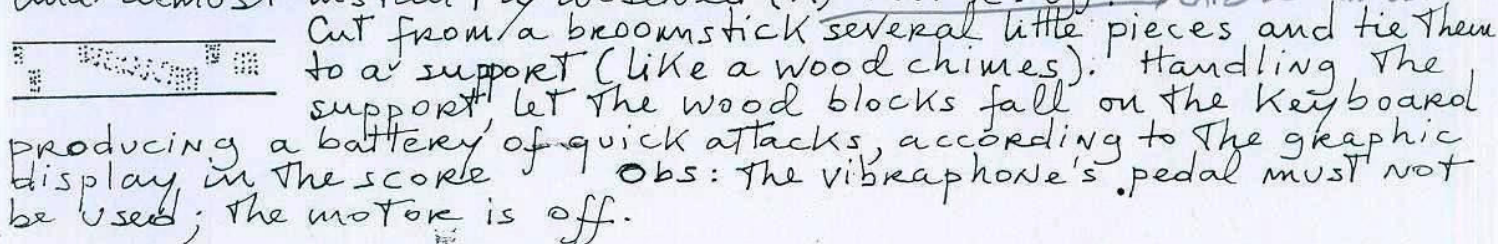 Cut from a broomstick several little pieces and tie them
to a support (like a wood chimes). Handling the
support, let the wood blocks fall on the keyboard
producing a battery of quick attacks, according to the graphic
display in the score Obs: the vibraphone's pedal must not
be used; the motor is off.